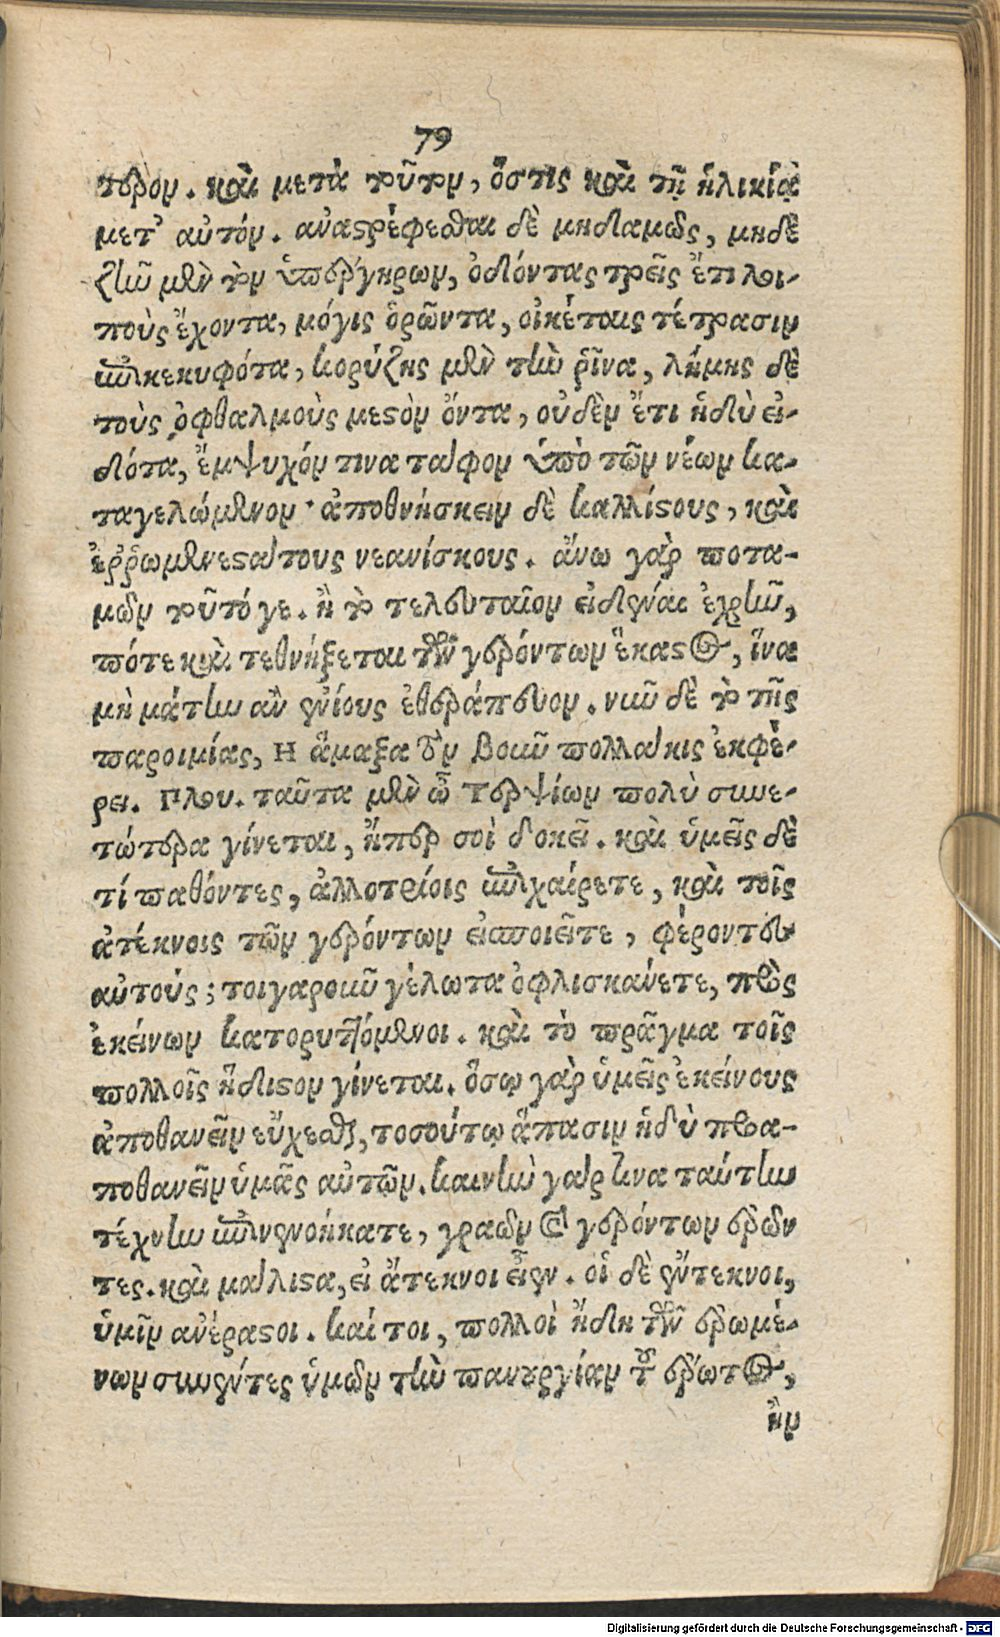 79
τερον. καὶ μετὰ τοῦτον, ὅστις καὶ τῇ ἡλικίᾳ
μετ' αὐτόν. ἀναστρέφεσθαι δὲ μηδαμῶς, μηδὲ
ζῆν μὲν τὸν ὑπέργηρων, ὀδόντας τρεῖς ἔτι λοι-
ποὺς ἔχοντα, μόγις ὁρῶντα, οἰκέταις τέτρασιν
ἐπικεκυφότα, κορύζης μὲν τὴν ῥῖνα, λήμης δὲ
τοὺς ὀφθαλμοὺς μεστὸν ὄντα, οὐδὲν ἔτι ἡδὺ εἰ-
δότα, ἔμψυχόν τινα τάφον ὑπὸ τῶν νέων κα-
ταγελώμενον· ἀποθνήσκειν δὲ καλλίστους, καὶ
ἐῤῥωμενεστάτους νεανίσκους. ἄνω γὰρ ποτα-
μῶν τοῦτό γε. ἢ τὸ τελευταῖον εἰδέναι ἐχρῆν,
πότε καὶ τεθνήξεται τῶν γερόντων ἕκαστος, ἵνα
μὴ μάτην ἂν ἐνίους ἐθεράπευον. νῦν δὲ τὸ τῆς
παροιμίας, Η ἅμαξα τὸν βοῦν πολλάκις ἐκφέ-
ρει. Πλου. ταῦτα μὲν ὦ Τερψίων πολὺ συνε-
τώτερα γίνεται, ἤπερ σοὶ δοκεῖ. καὶ ὑμεῖς δὲ
τί παθόντες, ἀλλοτρίοις ἐπιχαίρετε, καὶ τοῖς
ἀτέκνοις τῶν γερόντων εἰσποιεῖτε, φέροντες
αὐτούς; τοιγαροῦν γέλωτα ὀφλισκάνετε, πρὸς
ἐκείνων κατορυττόμενοι. καὶ τὸ πρᾶγμα τοῖς
πολλοῖς ἥδιστον γίνεται. ὅσῳ γὰρ ὑμεῖς ἐκείνους
ἀποθανεῖν εὔχεσθε, τοσούτῳ ἅπασιν ἡδὺ προα-
ποθανεῖν ὑμᾶς αὐτῶν. καινὴν γάρ τινα ταύτην
τέχνην ἐπινενοήκατε, γραῶν καὶ γερόντων ἐρῶν
τες. καὶ μάλιστα, εἰ ἄτεκνοι εἶεν. οἱ δὲ ἔντεκνοι,
ὑμῖν ἀνέραστοι. καί τοι, πολλοὶ ἤδη τῶν ἐρωμέ-
νων συνέντες ὑμῶν τὴν πανουργίαν τοῦ ἔρωτος,
ἢν
Digitalisierung gefördert durch die Deutsche Forschungsgemeinschaft - DFG